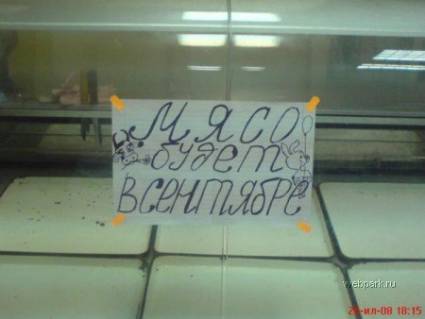 МЯСО
будет
В СЕНТЯБРЕ
webpark.ru
18:15